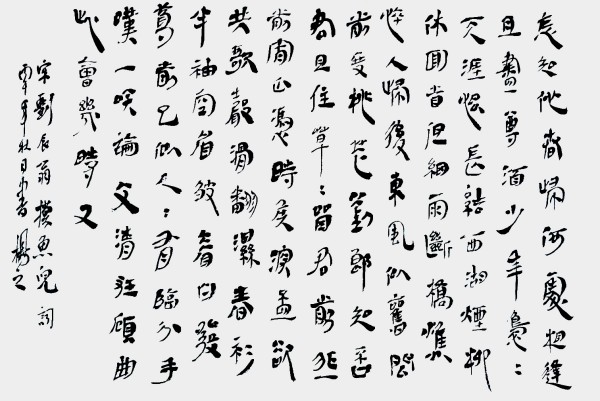 怎知他春歸何處相逢
且盡尊酒少年裊々
天涯恨長結西湖煙柳
休回首但細雨斷橋憔
悴人歸後東風似舊問
前度桃花劉郎知否
君且住草々留君剪韭
前宵正憑時候深盃欲
共歌聲滑翻濕春衫
半袖空眉皺看白發
尊前已似人々有臨分手
嘆一笑論文清狂顧曲
此會幾時又
宋劉辰翁摸魚兒詞
年秋日書